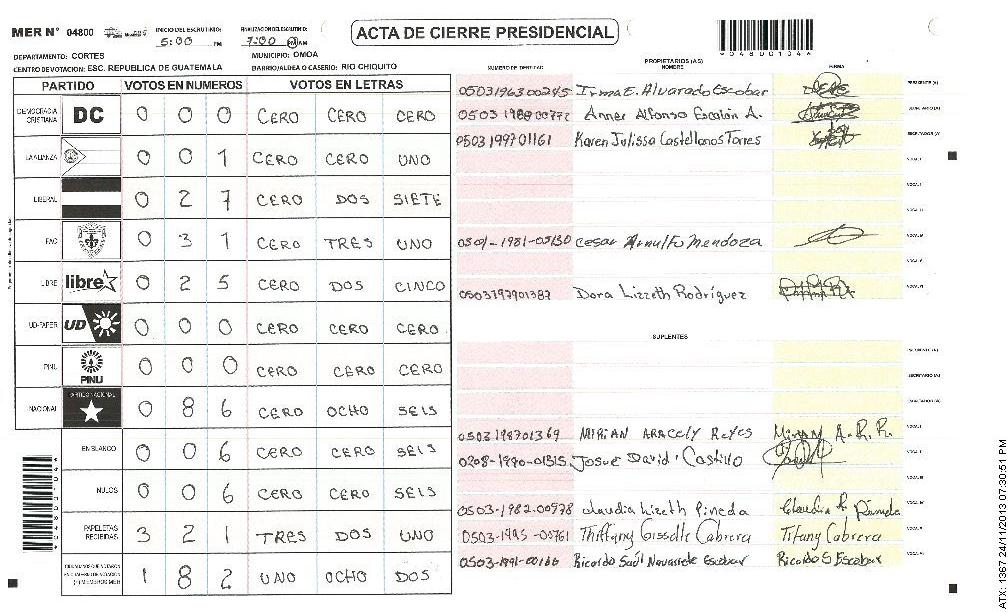 MER N° 04800 INICIO DEL ESCRUTINIO: 5:00 PM FINALIZACION DEL ESCRUTINIO: 7:00 PM AM
ACTA DE CIERRE PRESIDENCIAL
04800134
DEPARTAMENTO: CORTES MUNICIPIO: OMOA
CENTRO DE VOTACION: ESC. REPUBLICA DE GUATEMALA BARRIO/ALDEA O CASERIO: RIO CHIQUITO
PARTIDO VOTOS EN NUMEROS VOTOS EN LETRAS
DEMOCRACIA CRISTIANA DC 0 0 0 CERO CERO CERO
LA ALIANZA 0 0 1 CERO CERO UNO
LIBERAL 0 2 7 CERO DOS SIETE
PAC 0 3 1 CERO TRES UNO
LIBRE libre 0 2 5 CERO DOS CINCO
UD-FAPER UD 0 0 0 CERO CERO CERO
PINU PINU 0 0 0 CERO CERO CERO
NACIONAL PARTIDO NACIONAL 0 8 6 CERO OCHO SEIS
EN BLANCO 0 0 6 CERO CERO SEIS
NULOS 0 0 6 CERO CERO SEIS
PAPELETAS RECIBIDAS 3 2 1 TRES DOS UNO
1 8 2 UNO OCHO DOS
PROPIETARIOS (AS)
NUMERO DE IDENTIDAD NOMBRE FIRMA
0503196300245 Irma E. Alvarado Escobar PRESIDENTE (A)
0503 1988 00772 Anner Alfonso Escalón A.
0503 1997 01161 Karen Julissa Castellanos Torres SECRETARIO (A)
0501-1981-05130 Cesar Arnulfo Mendoza
0503197901387 Dora Lizzeth Rodríguez
SUPLENTES
PRESIDENTE (A)
SECRETARIO (A)
0503198701369 MIRIAN ARACELY REYES Miriam A. R. R.
0208-1990-01315 Josue David Castillo
0503-1982-00978 claudia Lizeth Pineda Claudia Pineda
0503-1995-00761 Thiffany Gisselle Cabrera Tifany Cabrera
0503-1991-00186 Ricardo Saúl Navarrete Escobar Ricardo S Escobar
ATX: 1367 24/11/2013 07:30:51 PM